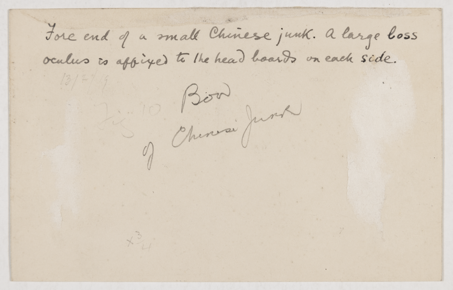 Fore end of a small Chinese junk. A large boss
oculus is affixed to the head boards on each side.
Bow
of Chinese Junk